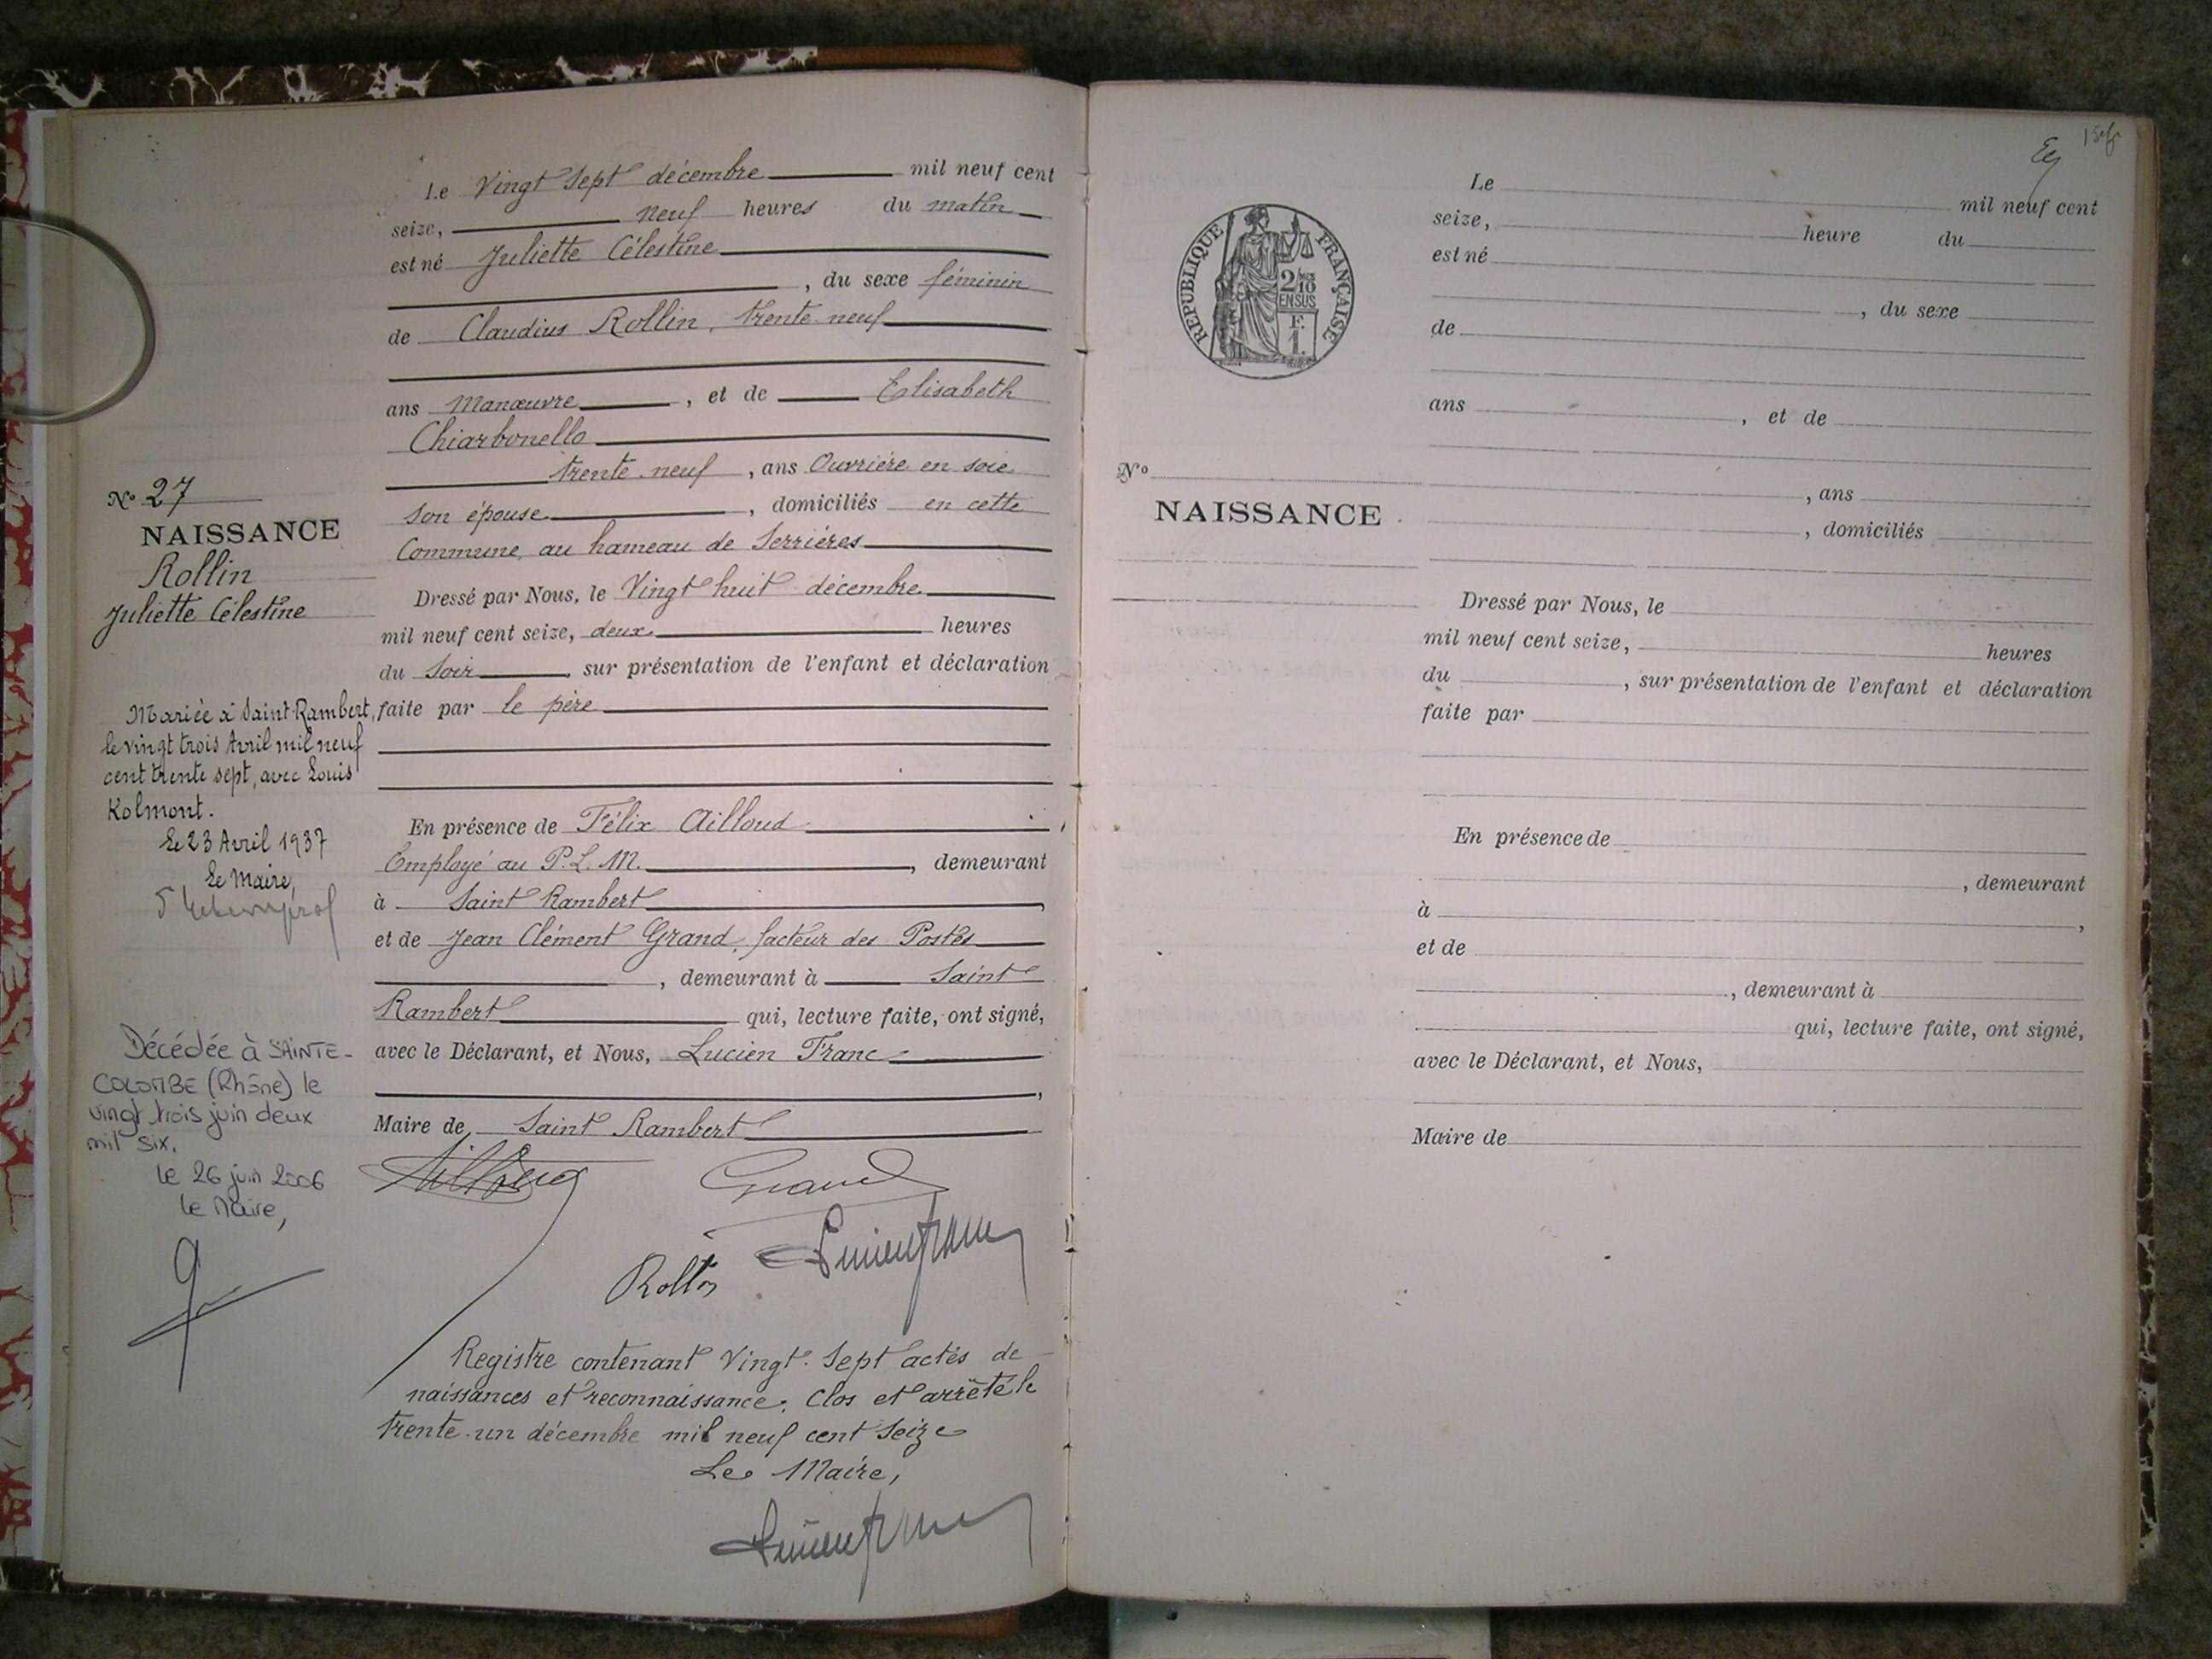 Le Vingt Sept décembre mil neuf cent
seize, neuf heures du matin
est né Juliette Célestine
, du sexe féminin
de Claudius Rollin, trente-neuf
ans Manœuvre, et de Elisabeth
Chiarbonello
trente-neuf, ans Ouvrière en soie
son épouse, domiciliés en cette
Commune, au hameau de Serrières
Dressé par Nous, le Vingt huit décembre
mil neuf cent seize, deux heures
du soir, sur présentation de l'enfant et déclaration
faite par le père
En présence de Félix Ailloud
Employé au P. L. M., demeurant
à Saint Rambert,
et de Jean Clément Grand, facteur des Postes
, demeurant à Saint
Rambert qui, lecture faite, ont signé,
avec le Déclarant, et Nous, Lucien Franc
,
Maire de Saint Rambert
Grand
Rollin
Registre contenant Vingt-Sept actes de
naissances et reconnaissance. Clos et arrêté le
trente-un décembre mil neuf cent seize
Le Maire,
No 27
NAISSANCE
Rollin
Juliette Célestine
Mariée à Saint-Rambert,
le vingt trois Avril mil neuf
cent trente sept, avec Louis
Kolmont.
Le 23 Avril 1937
Le Maire,
Décédée à SAINTE-
COLOMBE (Rhône) le
vingt trois juin deux
mil six.
le 26 juin 2006
le Maire,
REPUBLIQUE FRANÇAISE
2/10
EN SUS
F.
1.
No
NAISSANCE
Le mil neuf cent
seize, heure du
est né
, du sexe
de
ans , et de
, ans
, domiciliés
Dressé par Nous, le
mil neuf cent seize, heures
du , sur présentation de l'enfant et déclaration
faite par
En présence de
, demeurant
à ,
et de
, demeurant à
qui, lecture faite, ont signé,
avec le Déclarant, et Nous,
Maire de